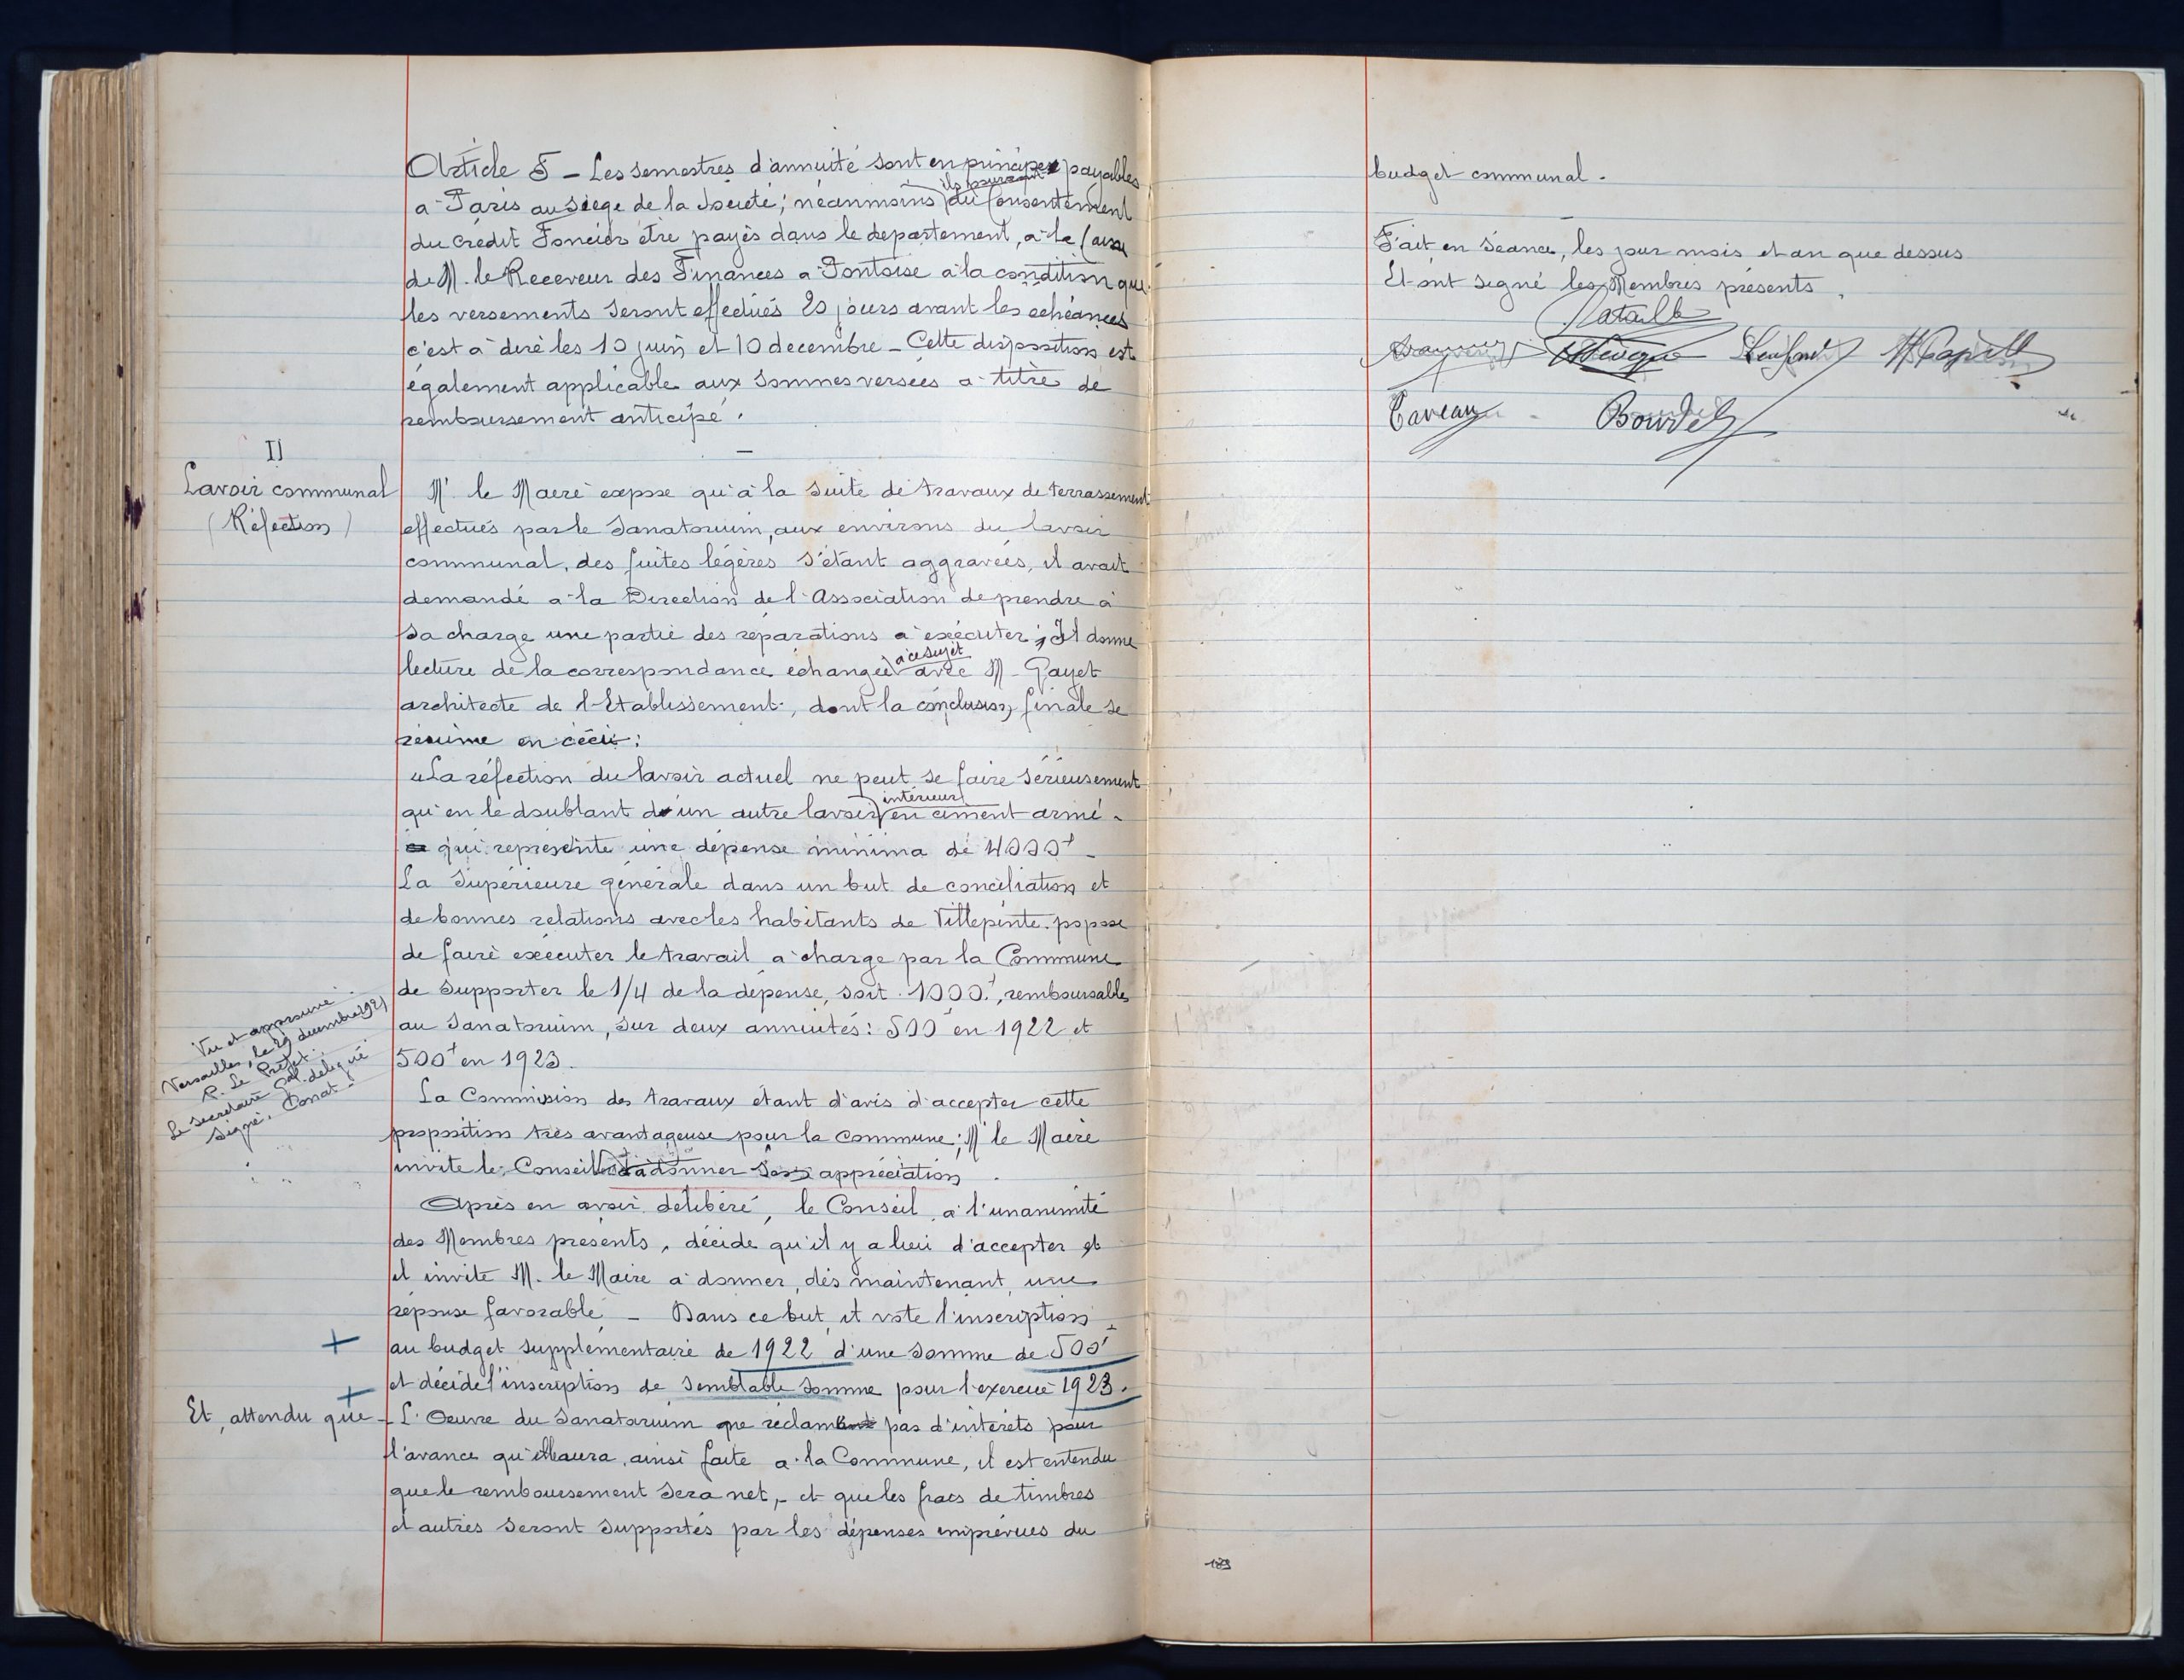 Article 5 - Les semestres d'annuité sont en principe payables
à Paris au siège de la Société; néanmoins ils pourront du consentement
du Crédit Foncier être payés dans le département, à la Caisse
de M. le Receveur des Finances à Pontoise à la condition que
les versements seront effectués 20 jours avant les échéances
c'est à dire les 10 juin et 10 décembre - Cette disposition est
également applicable aux sommes versées à titre de
remboursement anticipé.
II
Lavoir communal
(Réfection)
Mr le Maire expose qu'à la suite de travaux de terrassement
effectués par le Sanatorium, aux environs du lavoir
communal, des fuites légères s'étant aggravées, il avait
demandé à la Direction de l'Association de prendre à
sa charge une partie des réparations à exécuter; Il donne
lecture de la correspondance échangée à ce sujet avec M. Gayet
architecte de l'Etablissement, dont la conclusion finale se
résume en ceci:
"La réfection du lavoir actuel ne peut se faire sérieusement
qu'en le doublant d'un autre lavoir intérieur en ciment armé -
qui représente une dépense minima de 4000f -
La Supérieure générale dans un but de conciliation et
de bonnes relations avec les habitants de Villepinte popose
de faire exécuter le travail à charge par la Commune
de supporter le 1/4 de la dépense, soit 1000f, remboursables
au Sanatorium, sur deux annuités: 500f en 1922 et
500f en 1923.
Vu et approuvé
Versailles, le 29 décembre 1921
P. Le Préfet
Le Secrétaire Gal délégué
Signé: Donat
La Commission des travaux étant d'avis d'accepter cette
proposition très avantageuse pour la commune; Mr le Maire
invite le Conseil à donner son appréciation.
Après en avoir délibéré, le Conseil à l'unanimité
des Membres présents, décide qu'il y a lieu d'accepter et
et invite M. le Maire à donner, dès maintenant, une
réponse favorable - Dans ce but, il vote l'inscription
+ au budget supplémentaire de 1922 d'une somme de 500f
+ et décide l'inscription de semblable somme pour l'exercice 1923.
Et, attendu que - L'Oeuvre du Sanatorium ne réclame pas d'intérêts pour
l'avance qu'elle aura ainsi faite à la Commune, il est entendu
que le remboursement sera net, - et que les frais de timbres
et autres seront supportés par les dépenses imprévues du
budget communal.
Fait en Séance, les jour mois et an que dessus
Et ont signé les Membres présents.
Bataille
Caveau Bourdel
189